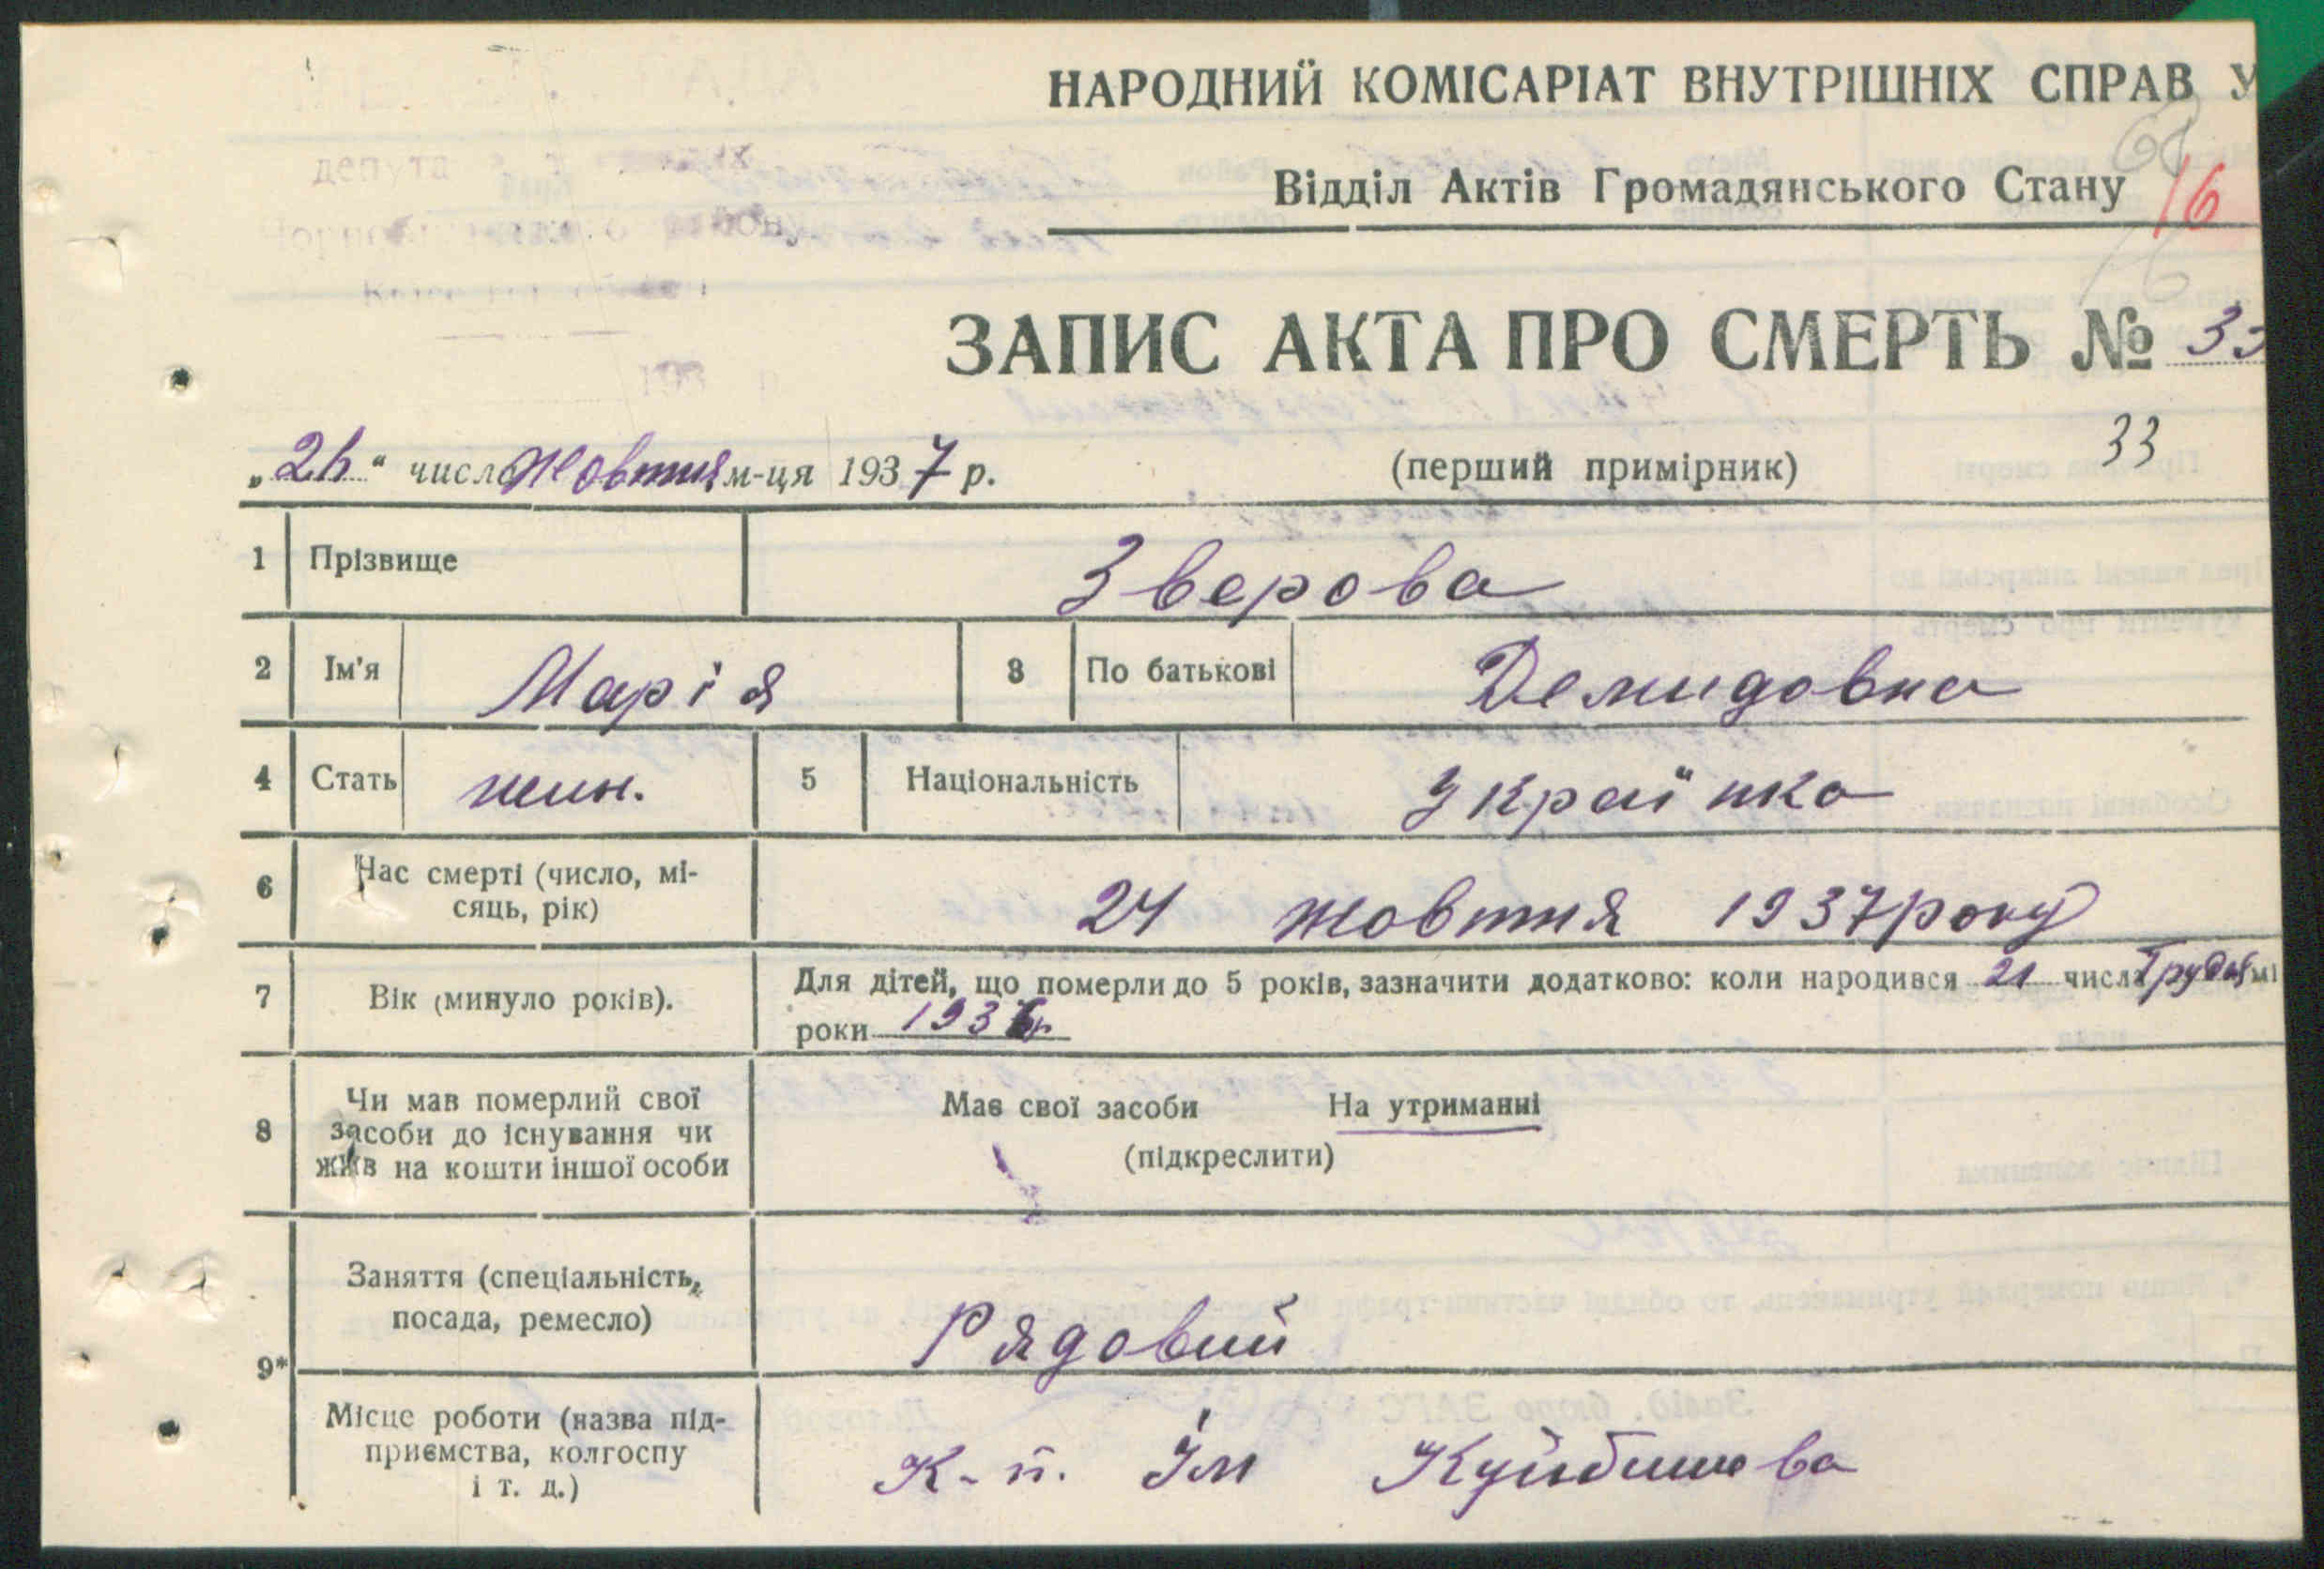 НАРОДНИЙ КОМІСАРІАТ ВНУТРІШНІХ СПРАВ У
68
Відділ Актів Громадянського Стану
16
ЗАПИС АКТА ПРО СМЕРТЬ № 33
„26“ число Жовтня м-ця 1937 р.
(перший примірник)
33
1 Прізвище Зверова
2 Ім'я Марія 3 По батькові Демидовна
4 Стать жин. 5 Національність Українка
6 Час смерті (число, мі-
сяць, рік)
24 жовтня 1937 року
7 Вік (минуло років).
Для дітей, що померли до 5 років, зазначити додатково: коли народився 21 числа Грудня мі
роки 1936 р.
8 Чи мав померлий свої
засоби до існування чи
жив на кошти іншої особи
Має свої засоби На утриманні
(підкреслити)
9* Заняття (спеціальність,
посада, ремесло)
Рядовий
Місце роботи (назва під-
приємства, колгоспу
і т. д.)
К-п. Ім Куйбишева